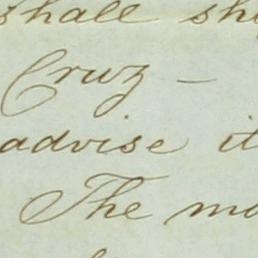 shall sh
Cruz —
advise it
The mo